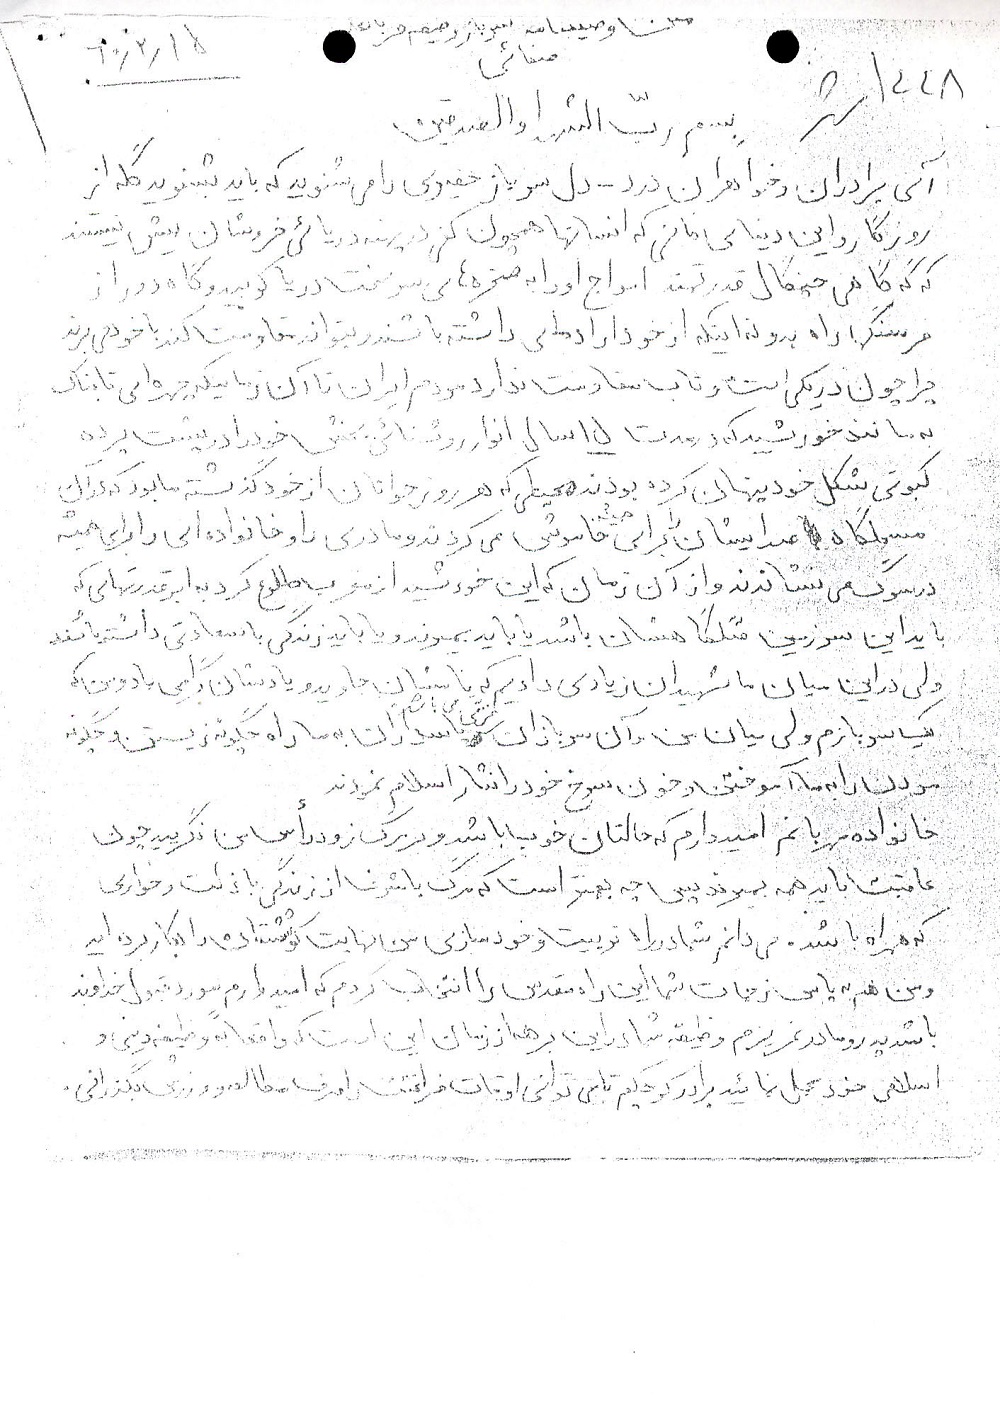 متن وصیتنامه سرباز وظیفه
صفائی
۶۰/۲/۱۵
۱۴۴۸
بسم رب الشهدا والصدیقین
ای برادران و خواهران درد-دل سرباز حقیری را می شنوید که باید بشنوید گله از
روزگار و این دنیای فانی که انسانها همچون کف در پهنه دریائی خروشان بیش نیستند
که گه گاهی چنگال قدرتمند امواج او را به صخره های سرسخت دریا کوبید و گاه دور از
هر سنگر راه بدون اینکه از خود اراده ای داشته باشند و بتواند مقاومت کند با خود می برند
چرا چون در یکی است و تاب مقاومت ندارد مردم ایران تا آن زمانیکه چهره ای تابناک
به مانند خورشید که در مدت ۱۵ سال انوار روشنائی بخش خود را در پشت پرده
کبوتی شکل خود پنهان کرده بودند محیطی که هر روز جوانان از خود گذشته ما بود که در آن
صدایشان برای همیشه خاموش می کردند و مادری را و خانواده ای را برای همیشه
در سوگ می نشاندند و از آن زمان که این خورشید از مغرب طلوع کرد به ابرقدرتهایی که
باید این سرزمین قتلگاهشان باشد یا باید بمیرند و یا باید زندگی با سعادتی داشته باشند
ولی در این میان ما شهیدان زیادی دادیم که یادشان جاوید و یادشان گرامی باد و من که
یک سربازم ولی میان من و آن سربازان و پاسداران به ما راه چگونه زیستن و چگونه
مردن را به ما آموختن و خون سرخ خود را نثار اسلام نمودند
خانواده مهربانم امیدوارم که حالتان خوب باشد و در مرگ زودرأس من نگریید چون
عاقبت باید همه بمیرند پس چه بهتر است که مرگ با شرف از زندگی با ذلت و خواری
که همراه باشد. می دانم شما در راه تربیت و خودسازی من نهایت کوشش را بکار برده اید
و من هم به پاس زحمات شما این راه مقدس را انتخاب کردم که امیدوارم مورد قبول خداوند
باشد پدر و مادر عزیزم وظیفه شما در این برهه از زمان این است که وظیفه دینی و
اسلامی خود عمل نمائید برادر کوچکم تا می توانی اوقات فراغتت را صرف مطالعه و ورزش بگذرانی.